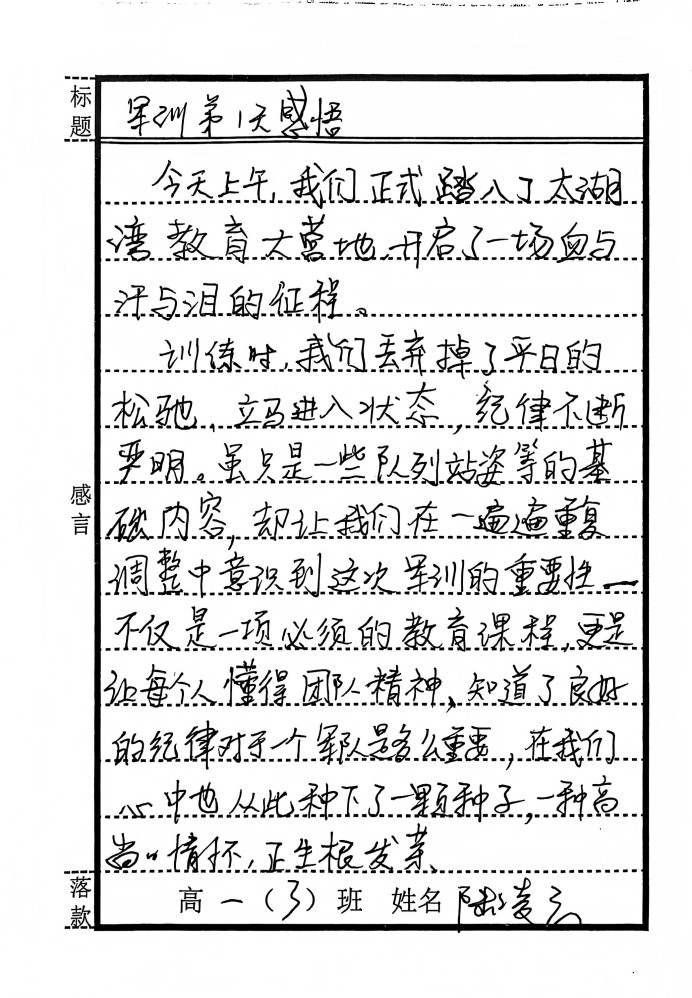 标题
军训第1天感悟
今天上午,我们正式踏入了太湖
湾教育大营地,开启了一场血与
汗与泪的征程。
训练时,我们丢弃掉了平日的
松驰、立马进入状态,纪律不断
严明。虽只是一些队列站姿等的基
础内容,却让我们在一遍遍重复
调整中意识到这次军训的重要性—
不仅是一项必须的教育课程,更是
让每个人懂得团队精神、知道了良好
的纪律对于一个军队是多么重要,在我们
心中也从此种下了一颗种子,一种高
尚的情怀,正生根发芽、
感言
落款
高一(3)班 姓名 陆凌云